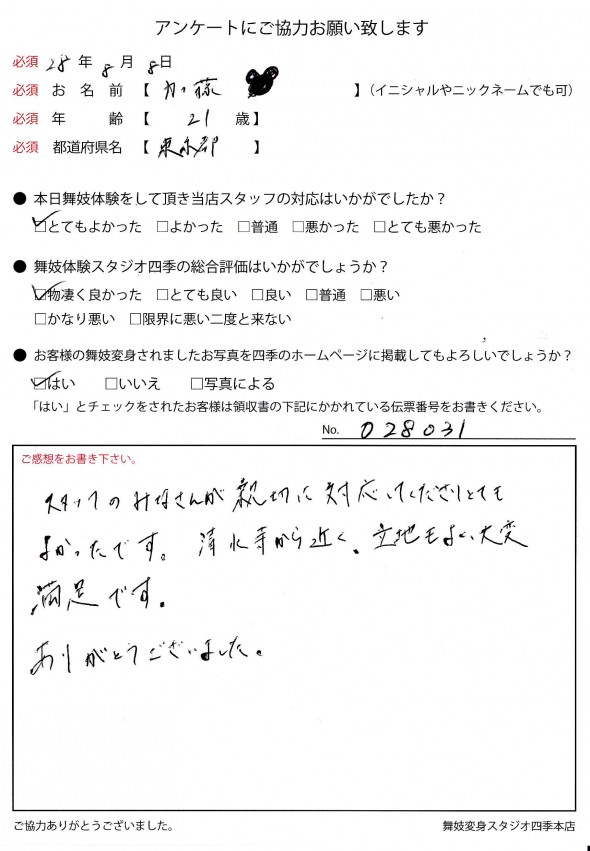 アンケートにご協力お願い致します
必須 28年8月8日
必須 お名前【 加藤 】（イニシャルやニックネームでも可）
必須 年齢【 21 歳】
必須 都道府県名【 東京都 】
● 本日舞妓体験をして頂き当店スタッフの対応はいかがでしたか？
☑とてもよかった □よかった □普通 □悪かった □とても悪かった
● 舞妓体験スタジオ四季の総合評価はいかがでしょうか？
☑物凄く良かった □とても良い □良い □普通 □悪い
□かなり悪い □限界に悪い二度と来ない
● お客様の舞妓変身されましたお写真を四季のホームページに掲載してもよろしいでしょうか？
☑はい □いいえ □写真による
「はい」とチェックをされたお客様は領収書の下記にかかれている伝票番号をお書きください。
No. 028031
ご感想をお書き下さい。
スタッフのみなさんが親切に対応してくださりとても
よかったです。清水寺から近く、立地もよく、大変
満足です。
ありがとうございました。
ご協力ありがとうございました。
舞妓変身スタジオ四季本店